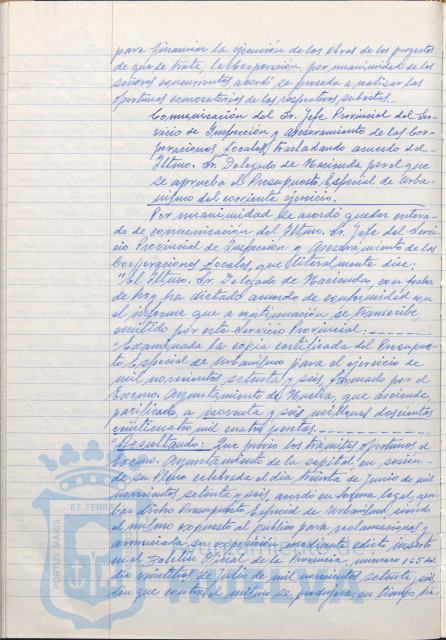 para financiar la ejecución de las Obras de los proyectos
de que se trata, la Corporación, por unanimidad de los
señores concurrentes acordó se proceda a realizar las
oportunas convocatorias de las respectivas subastas.
Comunicación del Sr. Jefe Provincial del Ser-
vicio de Inspección y asesoramiento de las Cor-
poraciones Locales, trasladando acuerdo del
Iltmo. Sr. Delegado de Hacienda por el que
se aprueba el Presupuesto Especial de Urba-
nismo del corriente ejercicio.
Por unanimidad se acordó quedar entera-
do de comunicación del Iltmo. Sr. Jefe del Servi-
cio Provincial de Inspección y Asesoramiento de las
Corporaciones Locales, que literalmente dice:
"El Iltmo. Sr. Delegado de Hacienda, con fecha
de hoy, ha dictado acuerdo de conformidad con
el informe que a continuación se transcribe
emitido por este Servicio Provincial:
"Examinada la copia certificada del Presupues-
to Especial de Urbanismo para el ejercicio de
mil novecientos setenta y seis, formado por el
Excmo. Ayuntamiento de Huelva, que asciende,
nivelado, a noventa y seis millones doscientas
veinticuatro mil cuatro pesetas.
"Resultando: Que previo los trámites oportunos el
Excmo. Ayuntamiento de la capital en sesión
de su Pleno celebrada el día treinta de Junio de mil
novecientos setenta y seis, acordó en forma legal, apro-
bar dicho Presupuesto Especial de Urbanismo, siendo
el mismo expuesto al público para reclamaciones y
anunciada su exposición mediante edicto, inserto
en el Boletín Oficial de la Provincia, número 165 de
día veintitrés de Julio de mil novecientos setenta y seis,
sin que contra el mismo se produjera, en tiempo
PORTUS MARIS ET TERRA
Ayuntamiento de
HUELVA